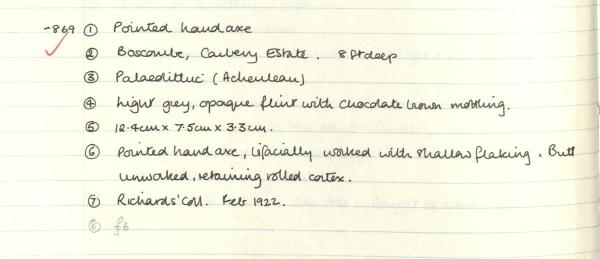 -869 ① Pointed handaxe
② Boscombe, Carbery Estate. 8ft deep
③ Palaeolithic (Acheulean)
④ Light grey, opaque flint with chocolate brown mottling.
⑤ 12.4cm x 7.5cm x 3.3cm.
⑥ Pointed handaxe, bifacially worked with shallow flaking. Butt
unworked, retaining rolled cortex.
⑦ Richards' Coll. Feb 1922.
⑧ £6